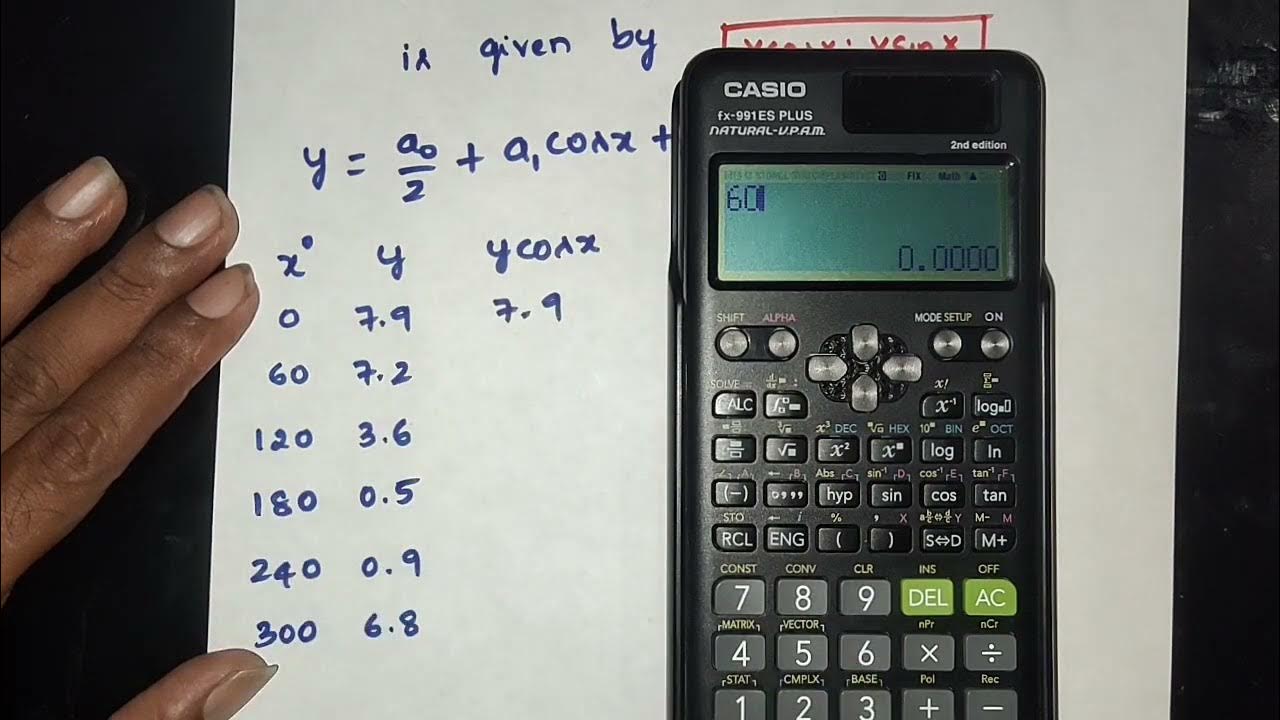 is given by
y = a₀/2 + a₁ cosx +
x° y ycosx
0 7.9 7.9
60 7.2
120 3.6
180 0.5
240 0.9
300 6.8
CASIO
fx-991ES PLUS
NATURAL-V.P.A.M.
2nd edition
FIX Math ▲
60
0.0000
SHIFT ALPHA MODE SETUP ON
SOLVE = x!
CALC x⁻¹ log
x³ DEC HEX 10 BIN e OCT
x² log ln
A B Abs C sin⁻¹ D cos⁻¹ E tan⁻¹ F
(−) hyp sin cos tan
STO ← i % , X Y M− M
RCL ENG ( ) S⇔D M+
CONST CONV CLR INS OFF
7 8 9 DEL AC
MATRIX VECTOR nPr nCr
4 5 6 × ÷
STAT CMPLX BASE Pol Rec
1 2 3 + −